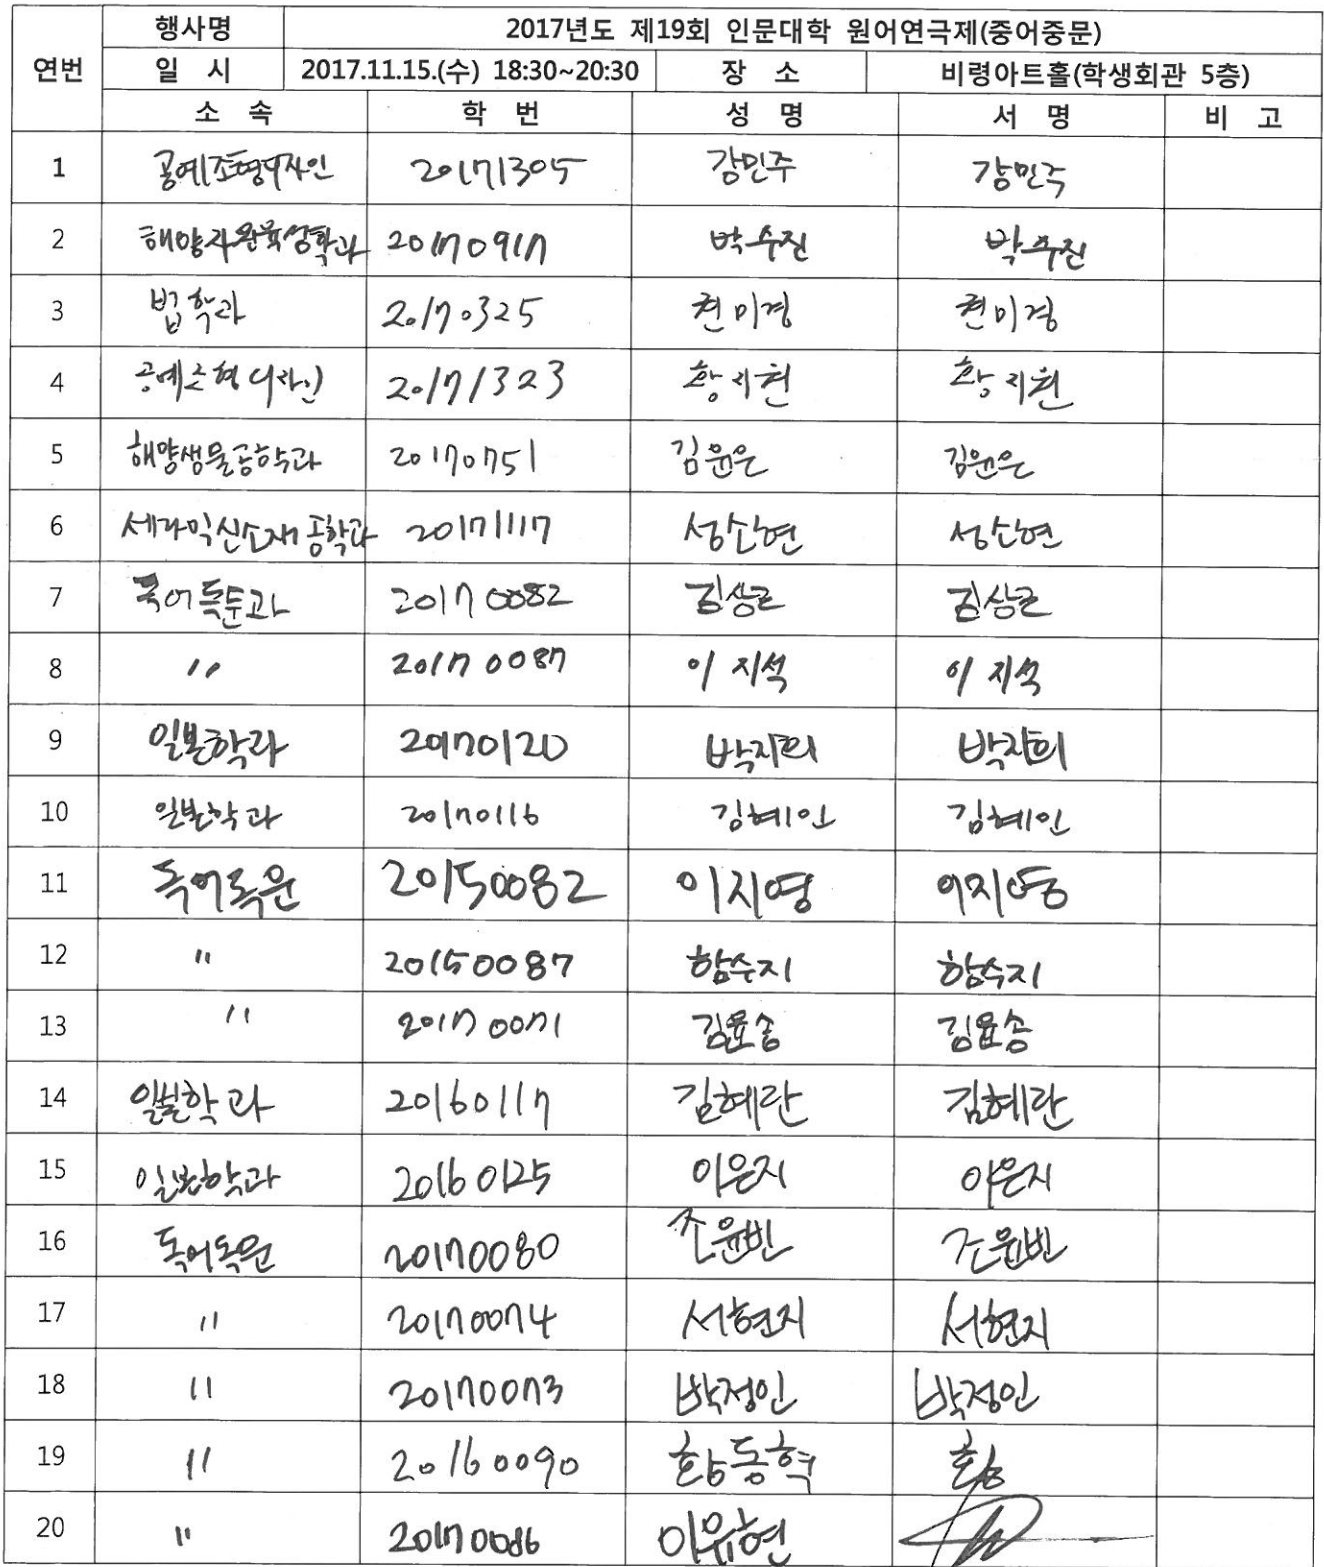 연번 행사명 2017년도 제19회 인문대학 원어연극제(중어중문)
일 시 2017.11.15.(수) 18:30~20:30 장 소 비령아트홀(학생회관 5층)
소 속 학 번 성 명 서 명 비 고
1 공예조형디자인 20171305 강민주 강민주
2 해양자원육성학과 20170917 박수진 박수진
3 법학과 20170325 권미경 권미경
4 공예조형디자인 20171323 황지원 황지원
5 해양생물공학과 20170751 김윤은 김윤은
6 세라믹신소재공학과 20171117 성소현 성소현
7 독어독문과 20170082 김상근 김상근
8 〃 20170087 이지석 이지석
9 일본학과 20170120 박지희 박지희
10 일본학과 20170116 김혜인 김혜인
11 독어독문 20150082 이지영 이지영
12 〃 20150087 함수지 함수지
13 〃 20170071 김윤송 김윤송
14 일본학과 20160117 김혜란 김혜란
15 일본학과 20160125 이은지 이은지
16 독어독문 20170080 조윤빈 조윤빈
17 〃 20170074 서현지 서현지
18 〃 20170073 박정인 박정인
19 〃 20160090 황동혁 황
20 〃 20170086 이유현